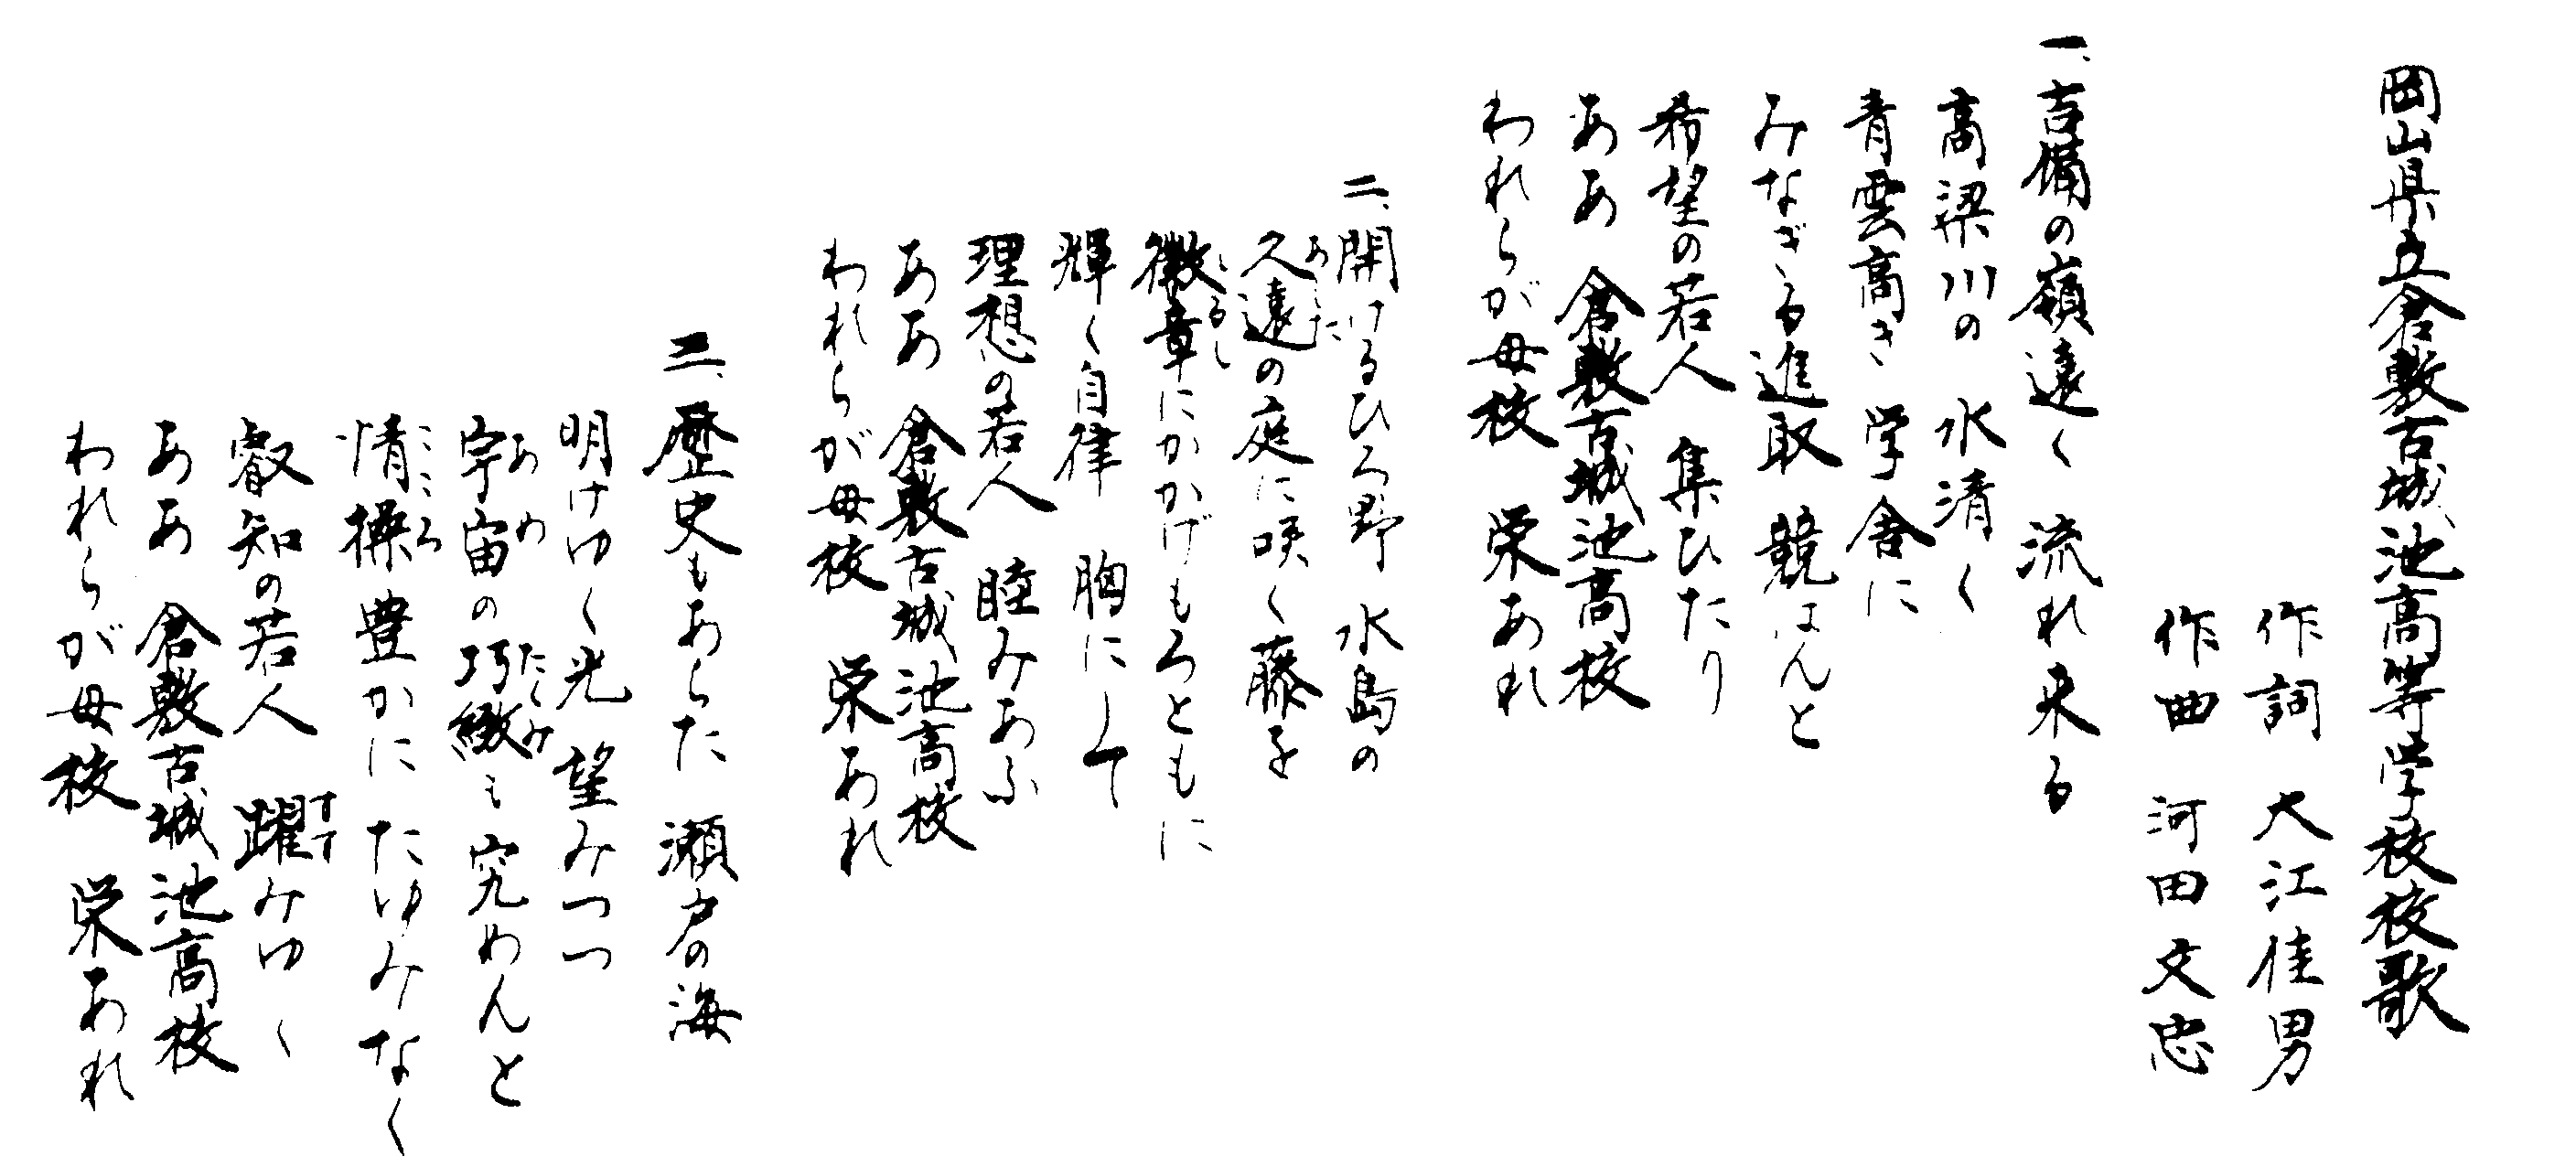 岡山県立倉敷古城池高等学校校歌
作詞 大江佳男
作曲 河田文忠
一、吉備の嶺遠く 流れ来る
高梁川の 水清く
青雲高き 学舎に
みなぎる進取 競はんと
希望の若人 集ひたり
ああ 倉敷古城池高校
われらが母校 栄あれ
二、開けるひろ野 水島の
久遠の庭に咲く藤を
徽章にかかげもろともに
輝く自律 胸にして
理想の若人 睦みあふ
ああ 倉敷古城池高校
われらが母校 栄あれ
三、歴史もあらた 瀬戸の海
明けゆく光 望みつつ
宇宙の巧緻も 究めんと
情操豊かに たゆみなく
叡知の若人 躍みゆく
ああ 倉敷古城池高校
われらが母校 栄あれ